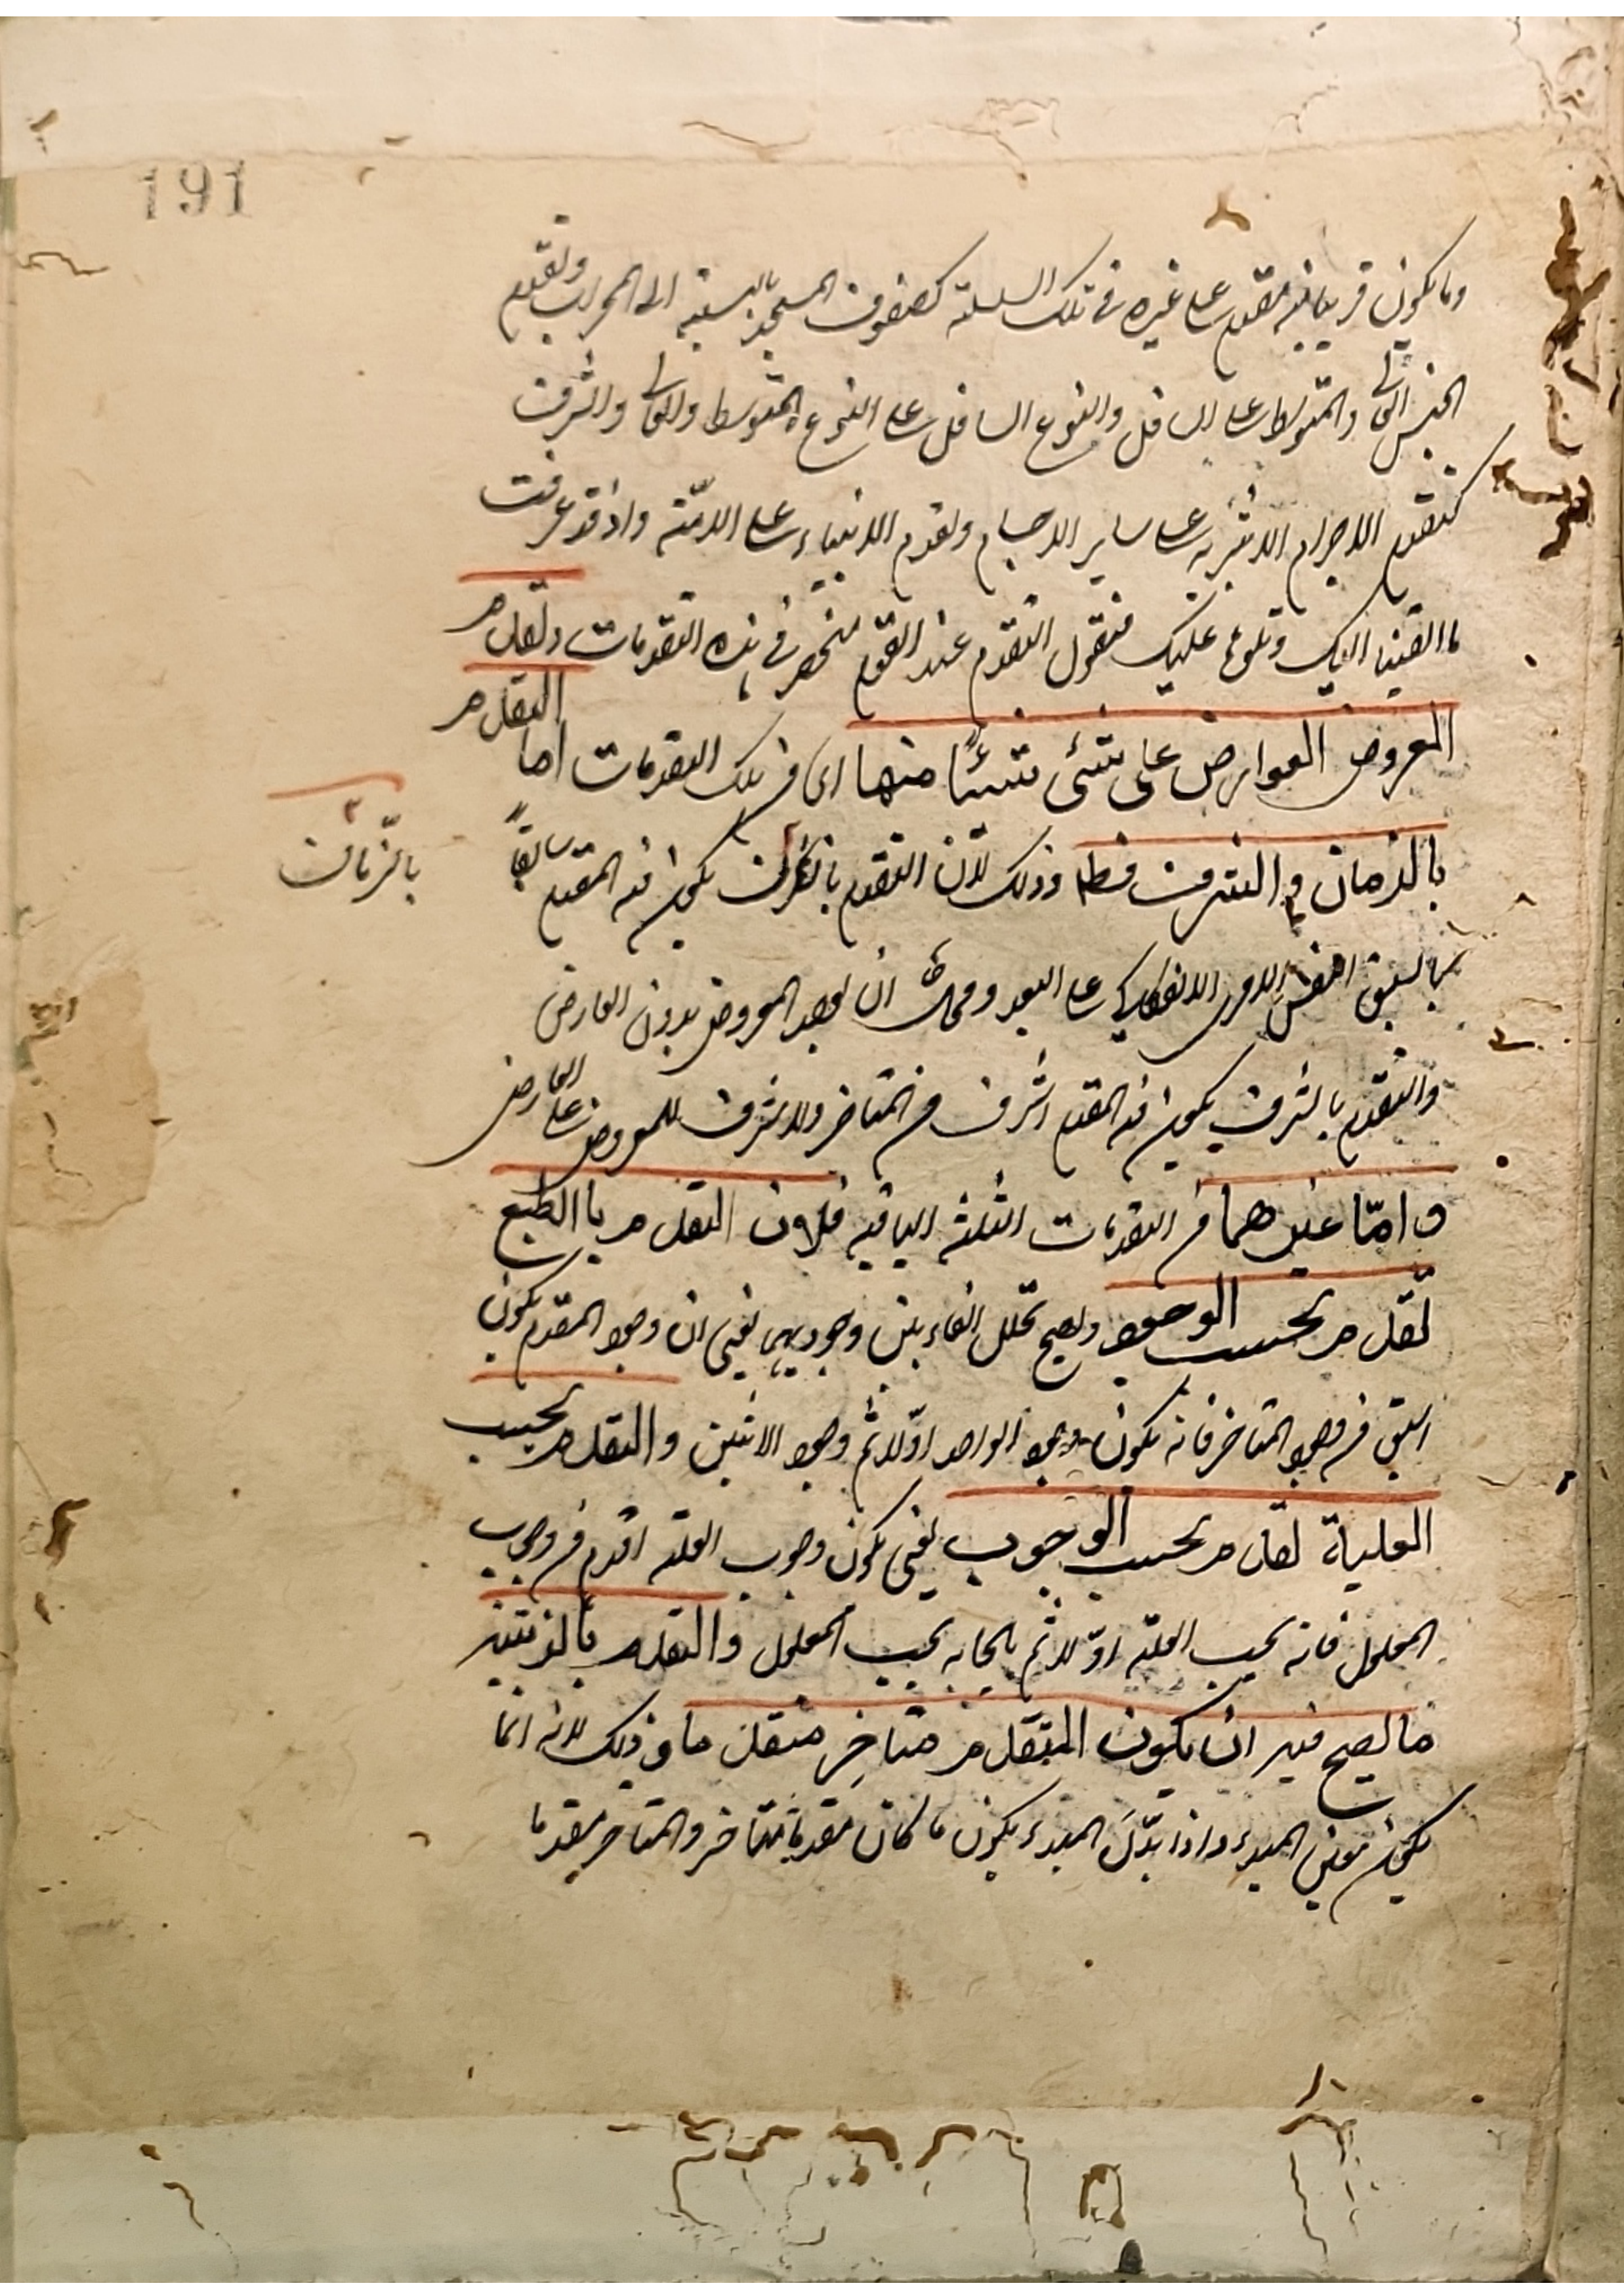 191
وما يكون قريبا منه مقدم على غيره فى تلك السلسلة كصفوف المسجد بالنسبة الى المحراب وتقدم
الجنس العالى والمتوسط على السافل والنوع السافل على النوع المتوسط والعالى والشرف
كتقدم الاجرام الاثيرية على ساير الاجسام وتقدم الانبياء على الامّة واذ قد عرفت
ما القينا اليك وتلونا عليك فنقول التقدم عند القوم منحصر فى هذه التقدمات وتقدم
المعروض العوارض على شئى شيئًا منها اى من تلك التقدمات اما التقدم
بالزمان و الشرف فط وذلك لان التقدم بالزمان يكون فيه المقدم سابقاً
بالزمان
بالسبق الانفكاكي على البعد ومحال ان يوجد المعروض بدون العارض
والتقدم بالشرف يكون فيه المقدم اشرف من المتاخر ولا شرف للمعروض على العارض
و امّا غيرهما من التقدمات الثلثة الباقية فلان التقدم باالطبع
تقدم بحسب الوجود ويصح تخلل الفاء بين وجوديهما يعنى ان وجود المقدم يكون
اسبق من وجود المتاخر فانه يكون وجود الواحد اوّلا ثم وجود الاثنين والتقدم بحسب
العلية تقدم بحسب الوجوب يعنى يكون وجوب العلة اقدم من وجوب
المعلول فانه يجب العلة اوّلا ثم بايجابه يجب المعلول والتقدم بالرتبة
ما يصح فيه ان يكون المتقدم متاخِر متقدما وذلك لانه انما
يكون بتعين المبدء واذا بدّلَ المبدء يكون ما كان مقدما متاخر والمتاخر مقدما